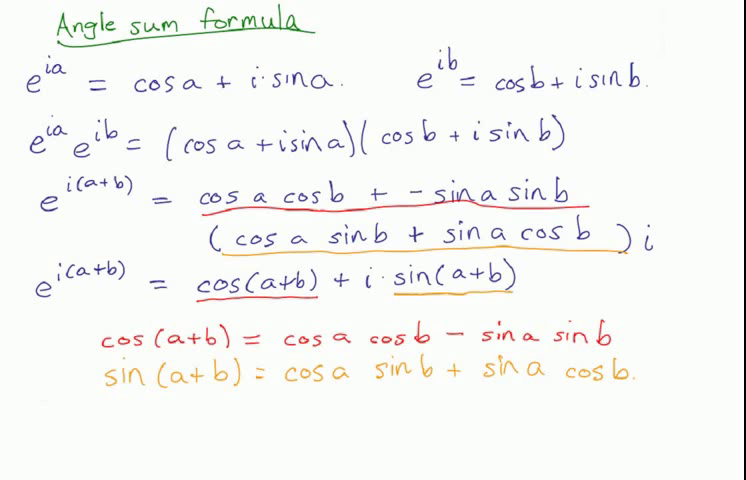 Angle sum formula
e^{ia} = cos a + i·sin a. e^{ib} = cos b + i sin b.
e^{ia} e^{ib} = (cos a + i sin a)(cos b + i sin b)
e^{i(a+b)} = cos a cos b + - sin a sin b
(cos a sin b + sin a cos b) i
e^{i(a+b)} = cos(a+b) + i·sin(a+b)
cos (a+b) = cos a cos b - sin a sin b
sin (a+b) = cos a sin b + sin a cos b.